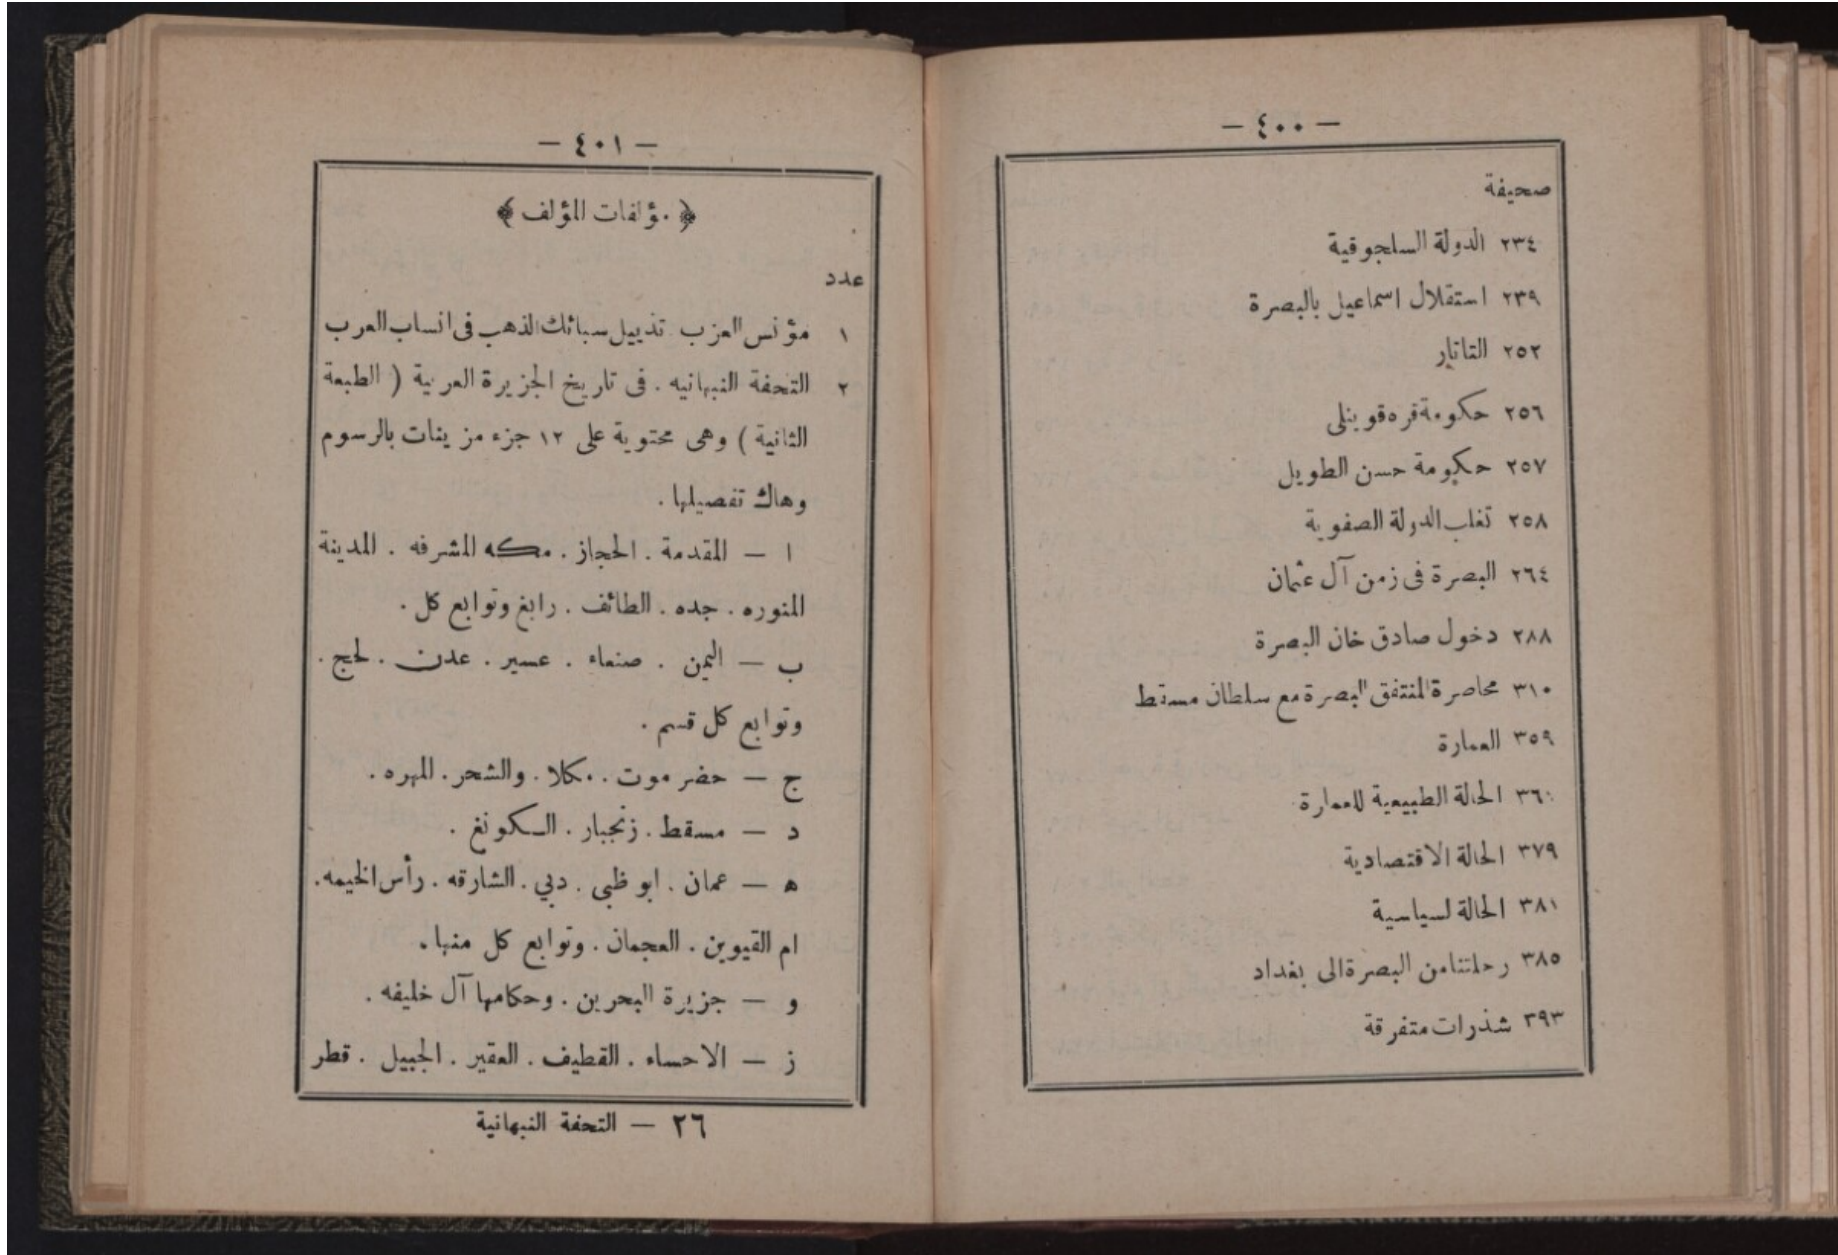 — ٤٠٠ —
صحيفة
٢٣٤ الدولة السلجوقية
٢٣٩ استقلال اسماعيل بالبصرة
٢٥٢ التاتار
٢٥٦ حكومة قره قوينلى
٢٥٧ حكومة حسن الطويل
٢٥٨ تغلب الدولة الصفوية
٢٦٤ البصرة فى زمن آل عثمان
٢٨٨ دخول صادق خان البصرة
٣١٠ محاصرة المنتفق البصرة مع سلطان مسقط
٣٥٩ العمارة
٣٦٠ الحالة الطبيعية للعمارة
٣٧٩ الحالة الاقتصادية
٣٨١ الحالة لسياسية
٣٨٥ رحلتنا من البصرة الى بغداد
٣٩٣ شذرات متفرقة
— ٤٠١ —
﴿ مؤلفات المؤلف ﴾
عدد
١ مؤنس العزب. تذييل سبائك الذهب فى انساب العرب
٢ التحفة النبهانيه . فى تاريخ الجزيرة العربية ( الطبعة
الثانية ) وهى محتوية على ١٢ جزء مزينات بالرسوم
وهاك تفصيلها .
ا — المقدمة . الحجاز . مكه المشرفه . المدينة
المنوره . جده . الطائف . رابغ وتوابع كل .
ب — اليمن . صنعاء . عسير . عدن . لحج .
وتوابع كل قسم .
ج — حضر موت . مكلا . والشحر . المهره .
د — مسقط . زنجبار . السكونغ .
ه — عمان . ابو ظبى . دبي . الشارقه . رأس الخيمه .
ام القيوين . العجمان . وتوابع كل منها .
و — جزيرة البحرين . وحكامها آل خليفه .
ز — الاحساء . القطيف . العقير . الجبيل . قطر
٢٦ — التحفة النبهانية